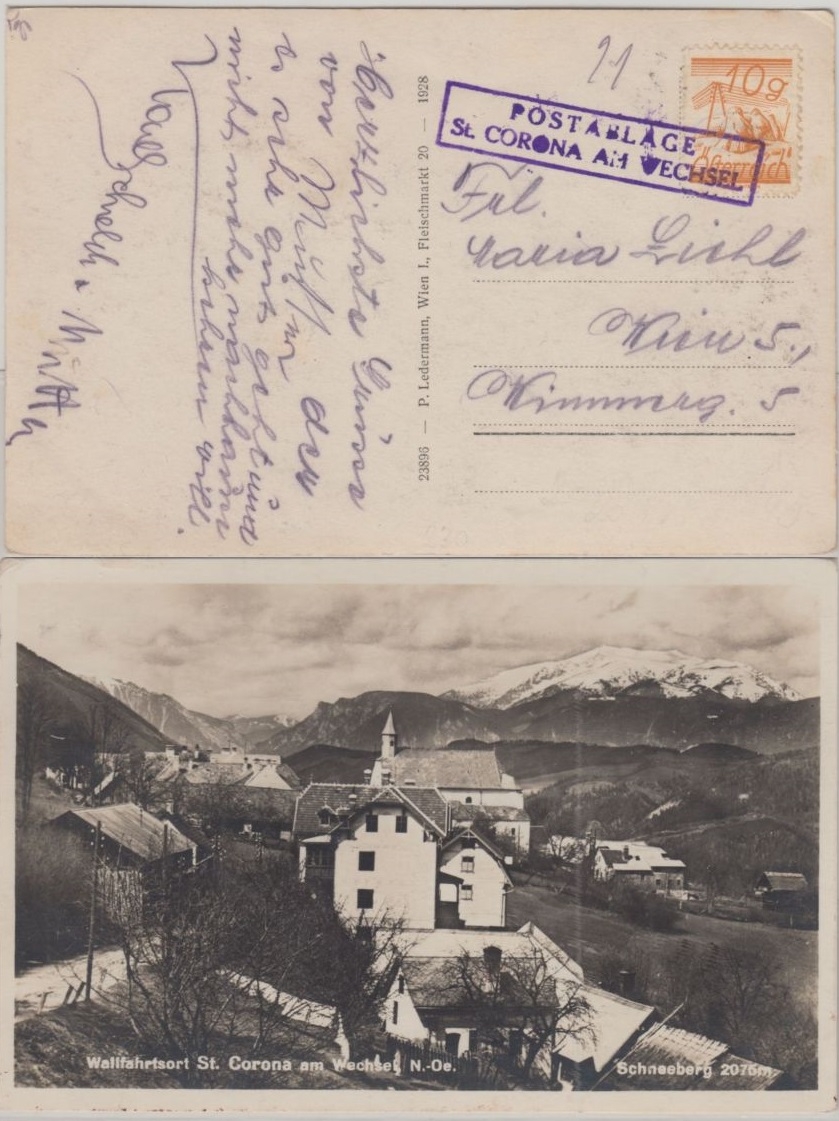 21
10g
Österreich
POSTABLAGE
St. CORONA AM WECHSEL
Frl.
Maria Liehl
Wien 5.,
5
23896 — P. Ledermann, Wien I., Fleischmarkt 20 — 1928
Herzlichste Grüsse
von Mutter der
es sehr gut geht und
nicht mehr nachhause
will.
Wallfahrtsort St. Corona am Wechsel N.-Oe.
Schneeberg 2075m